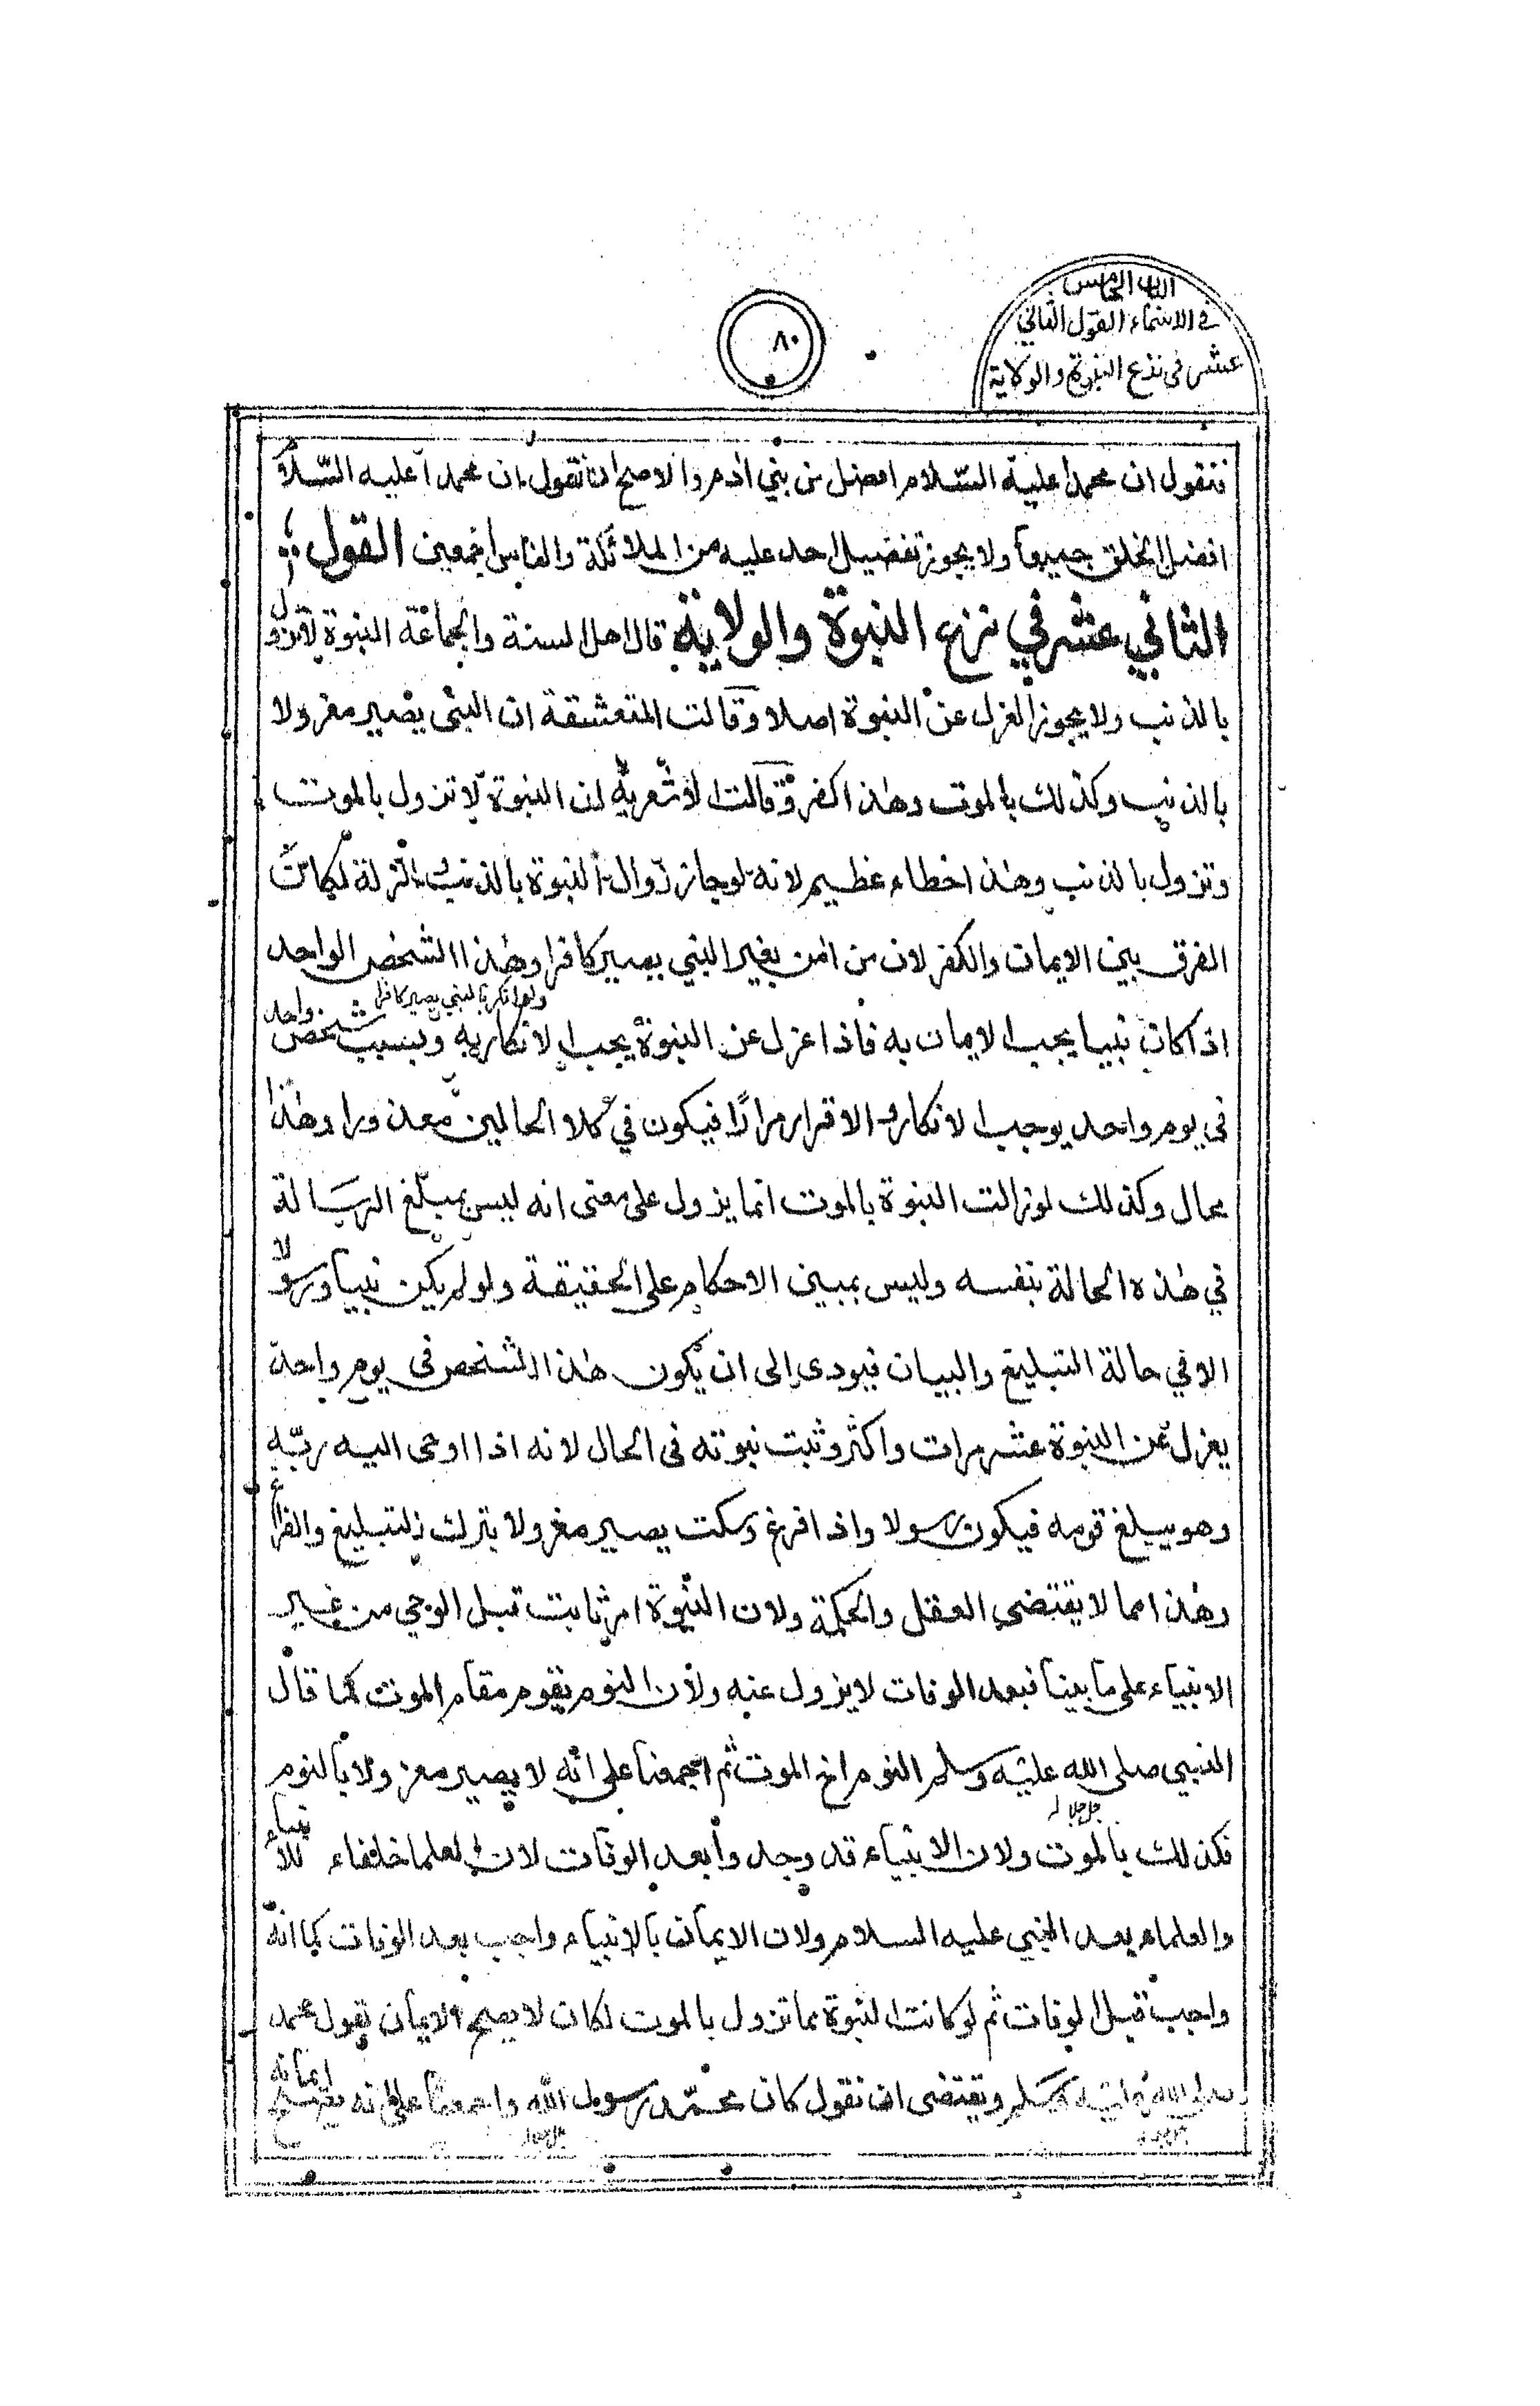 الباب الخامس
في الانبياء القول الثاني
عشر في نزع النبوة والولاية
٨٠
فنقول ان محمدا عليه السّلام افضل من بني اٰدم والاصح ان نقول ان محمدا عليه السّلام
افضل الخلق جميعا ولا يجوز تفضيل احد عليه من الملائكة والناس اجمعين القول
الثاني عشر في نزع النبوة والولاية قال اهل السنة والجماعة النبوة لا تزول
بالذنب ولا يجوز العزل عن النبوة اصلا وقالت المتعشقة ان النبي يصير معزولا
بالذنب وكذلك بالموت وهٰذا كفر وقالت الاشعرية ان النبوة لا تزول بالموت
وتزول بالذنب وهٰذا خطاء عظيم لانه لو جاز زوال النبوة بالذنب والزلة لكان
الفرق بين الايمان والكفر لان من اٰمن بغير النبي يصير كافرا وهٰذا الشخص الواحد
ولو انكر بالنبي يصير كافرا
اذا كان نبيا يجب الايمان به فاذا عزل عن النبوة يجب الانكار به وبسبب شخص واحد
في يوم واحد يوجب الانكار والاقرار مرارًا فيكون في كلا الحالين معذورا وهٰذا
محال وكذلك لو زالت النبوة بالموت انما يزول على معنى انه ليس بمبلّغ الرسالة
في هٰذه الحالة بنفسه وليس بمبين الاحكام على الحقيقة ولو لم يكن نبيا ورسولا
الا في حالة التبليغ والبيان فيودى الى ان يكون هٰذا الشخص في يوم واحد
يعزل عن النبوة عشر مرات واكثر وثبت نبوته في الحال لانه اذا اوحى اليه ربّه
وهو يبلغ قومه فيكون رسولا واذا فرغ وسكت يصير معزولا بترك التبليغ والفراغ
وهٰذا مما لا يقتضي العقل والحكمة ولان النبوة امر ثابت قبل الوحي من غير
الانبياء على ما بينا فبعد الوفات لا يزول عنه ولان النوم يقوم مقام الموت كما قال
النبي صلى الله عليه وسلم النوم اخ الموت ثم اجمعنا على انه لا يصير معزولا بالنوم
جل جلاله
فكذلك بالموت ولان الانبياء قد وجدوا بعد الوفات لان العلما خلفاء للانبياء
والعلماء بعد النبي عليه السلام ولان الايمان بالانبياء واجب بعد الوفات كما انه
واجب قبل الوفات ثم لو كانت النبوة مما تزول بالموت لكان لا يصح الايمان بقول محمد
صلى الله عليه وسلم ويقتضى ان نقول كان محمّد رسول الله واجمعنا على انه يصح ايمانه